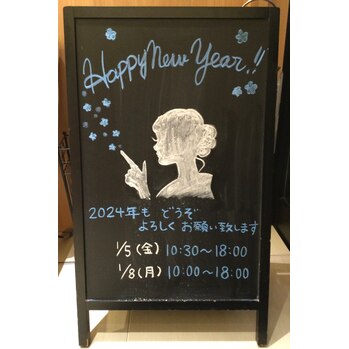 Happy New Year!!
2024年も どうぞ
よろしく お願い致します
1/5(金) 10:30〜18:00
1/8(月) 10:00〜18:00